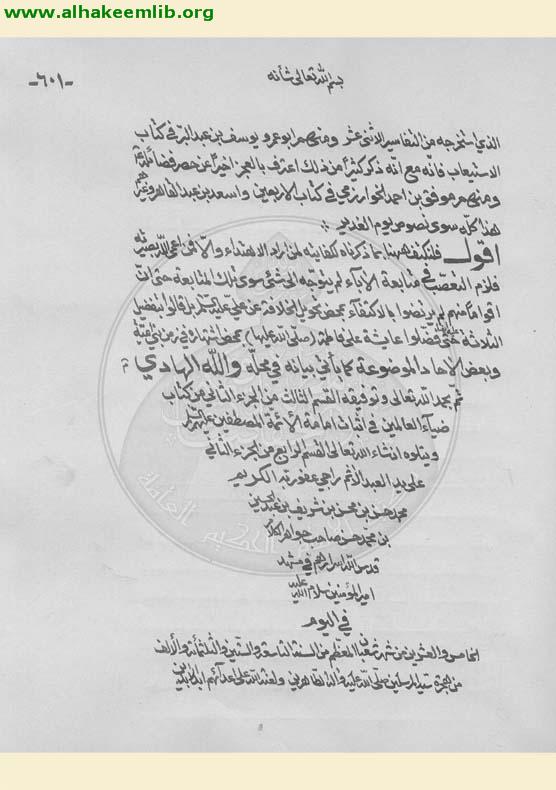 www.alhakeemlib.org
بسم الله تعالى شأنه
-٦٠١-
الذي استخرجه من التفاسير الاثنى عشر ومنهم ابو عمرو يوسف بن عبد البر في كتاب
الاستيعاب فانه مع انّه ذكر كثيراً من ذلك اعترف بالعجز اخيراً عن حصر فضائله
ومنهم موفق بن احمد الخوارزمي في كتاب الاربعين واسعد بن عبد القاهر وغيرهم
هذا كلّه سوى نصوص يوم الغدير
اقول فلنكتف ههنا بما ذكرناه كفاية لمن اراد الاهتداء والّا فمن اعمى الله بصيرته
فلزم التعصّب في متابعة الآباء لم يتوجّه الى شئ سوى ذلك المتابعة حتى انّ
اقواماً منهم لم يرضوا بالاكتفاء بمحض تحويل الخلافة عن علي عليه السلم بل قالوا بتفضيل
الثلاثة حتى فضلوا عايشة على فاطمة (صلى الله عليها) بمحض اشتهاره في زمن بني امية
وبعض الآحاد الموضوعة كما يأتي بيانه في محلّه والله الهادي
تم بحمد الله تعالى وتوفيقه القسم الثالث من الجزء الثاني من كتاب
ضياء العالمين في اثبات امامة الأئمّة المصطفين عليهم السلم
ويتلوه انشاء الله تعالى القسم الرابع من الجزء الثاني
على يد العبد الآثم راجي عفو ربه الكريم
محمد حسن بن محسن بن شريف بن عبد الحسين
بن محمد حسن صاحب جواهر الكلام
قدس الله اسرارهم في مشهد
امير المؤمنين سلام الله عليه
في اليوم
الخامس والعشرين من شهر شعبان المعظم من السنة التاسعة والستين والثلثمائة والألف
من هجرة سيد المرسلين صلى الله عليه وآله الطاهرين ولعنة الله على اعدائهم ابد الآبدين